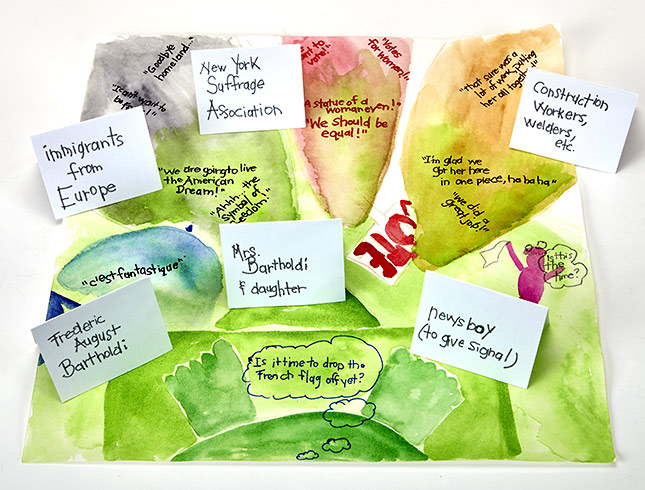 "Goodbye
homeland..."
"I can't wait to
New York
Suffrage
Association
to
vote!"
"Votes
for women!"
A statue of a
woman even!"
"We should be
equal!"
"that sure was a
lot of work, putting
her all together!"
Construction
Workers,
welders,
etc.
immigrants
from
Europe
"We are going to live
the American
Dream!"
"Ahhh... the
symbol of
freedom!"
"I'm glad we
got her here
in one piece, ha ha ha"
"We did a
great job!"
VOTE
"c'est fantastique"
Mrs.
Bartholdi
& daughter
Is this
the
time?
Frederic
August
Bartholdi
newsboy
(to give signal)
"Is it time to drop the
French flag off yet?